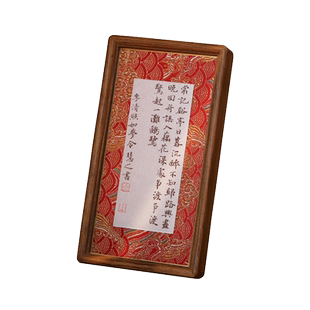 常記谿亭日暮沉醉不知歸路興盡
晚回舟誤入藕花深處爭渡爭渡
驚起一灘鷗鷺
李清照如夢令 慧之書